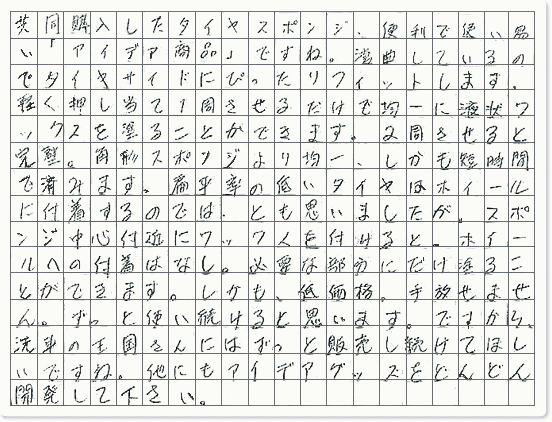 共同購入したタイヤスポンジ、便利で使い易
い「アイデア商品」ですね。湾曲しているの
でタイヤサイドにぴったりフィットします。
軽く押し当て1周させるだけで均一に液状ワ
ックスを塗ることができます。2周させると
完璧。角形スポンジより均一、しかも短時間
で済みます。扁平率の低いタイヤはホイール
に付着するのでは、とも思いましたが。スポ
ンジ中心付近にワックスを付けると、ホイー
ルへの付着はなし。必要な部分にだけ塗るこ
とができます。しかも、低価格。手放せませ
ん。ずっと使い続けると思います。ですから、
洗車の王国さんにはずっと販売し続けてほし
いですね。他にもアイデアグッズをどんどん
開発して下さい。